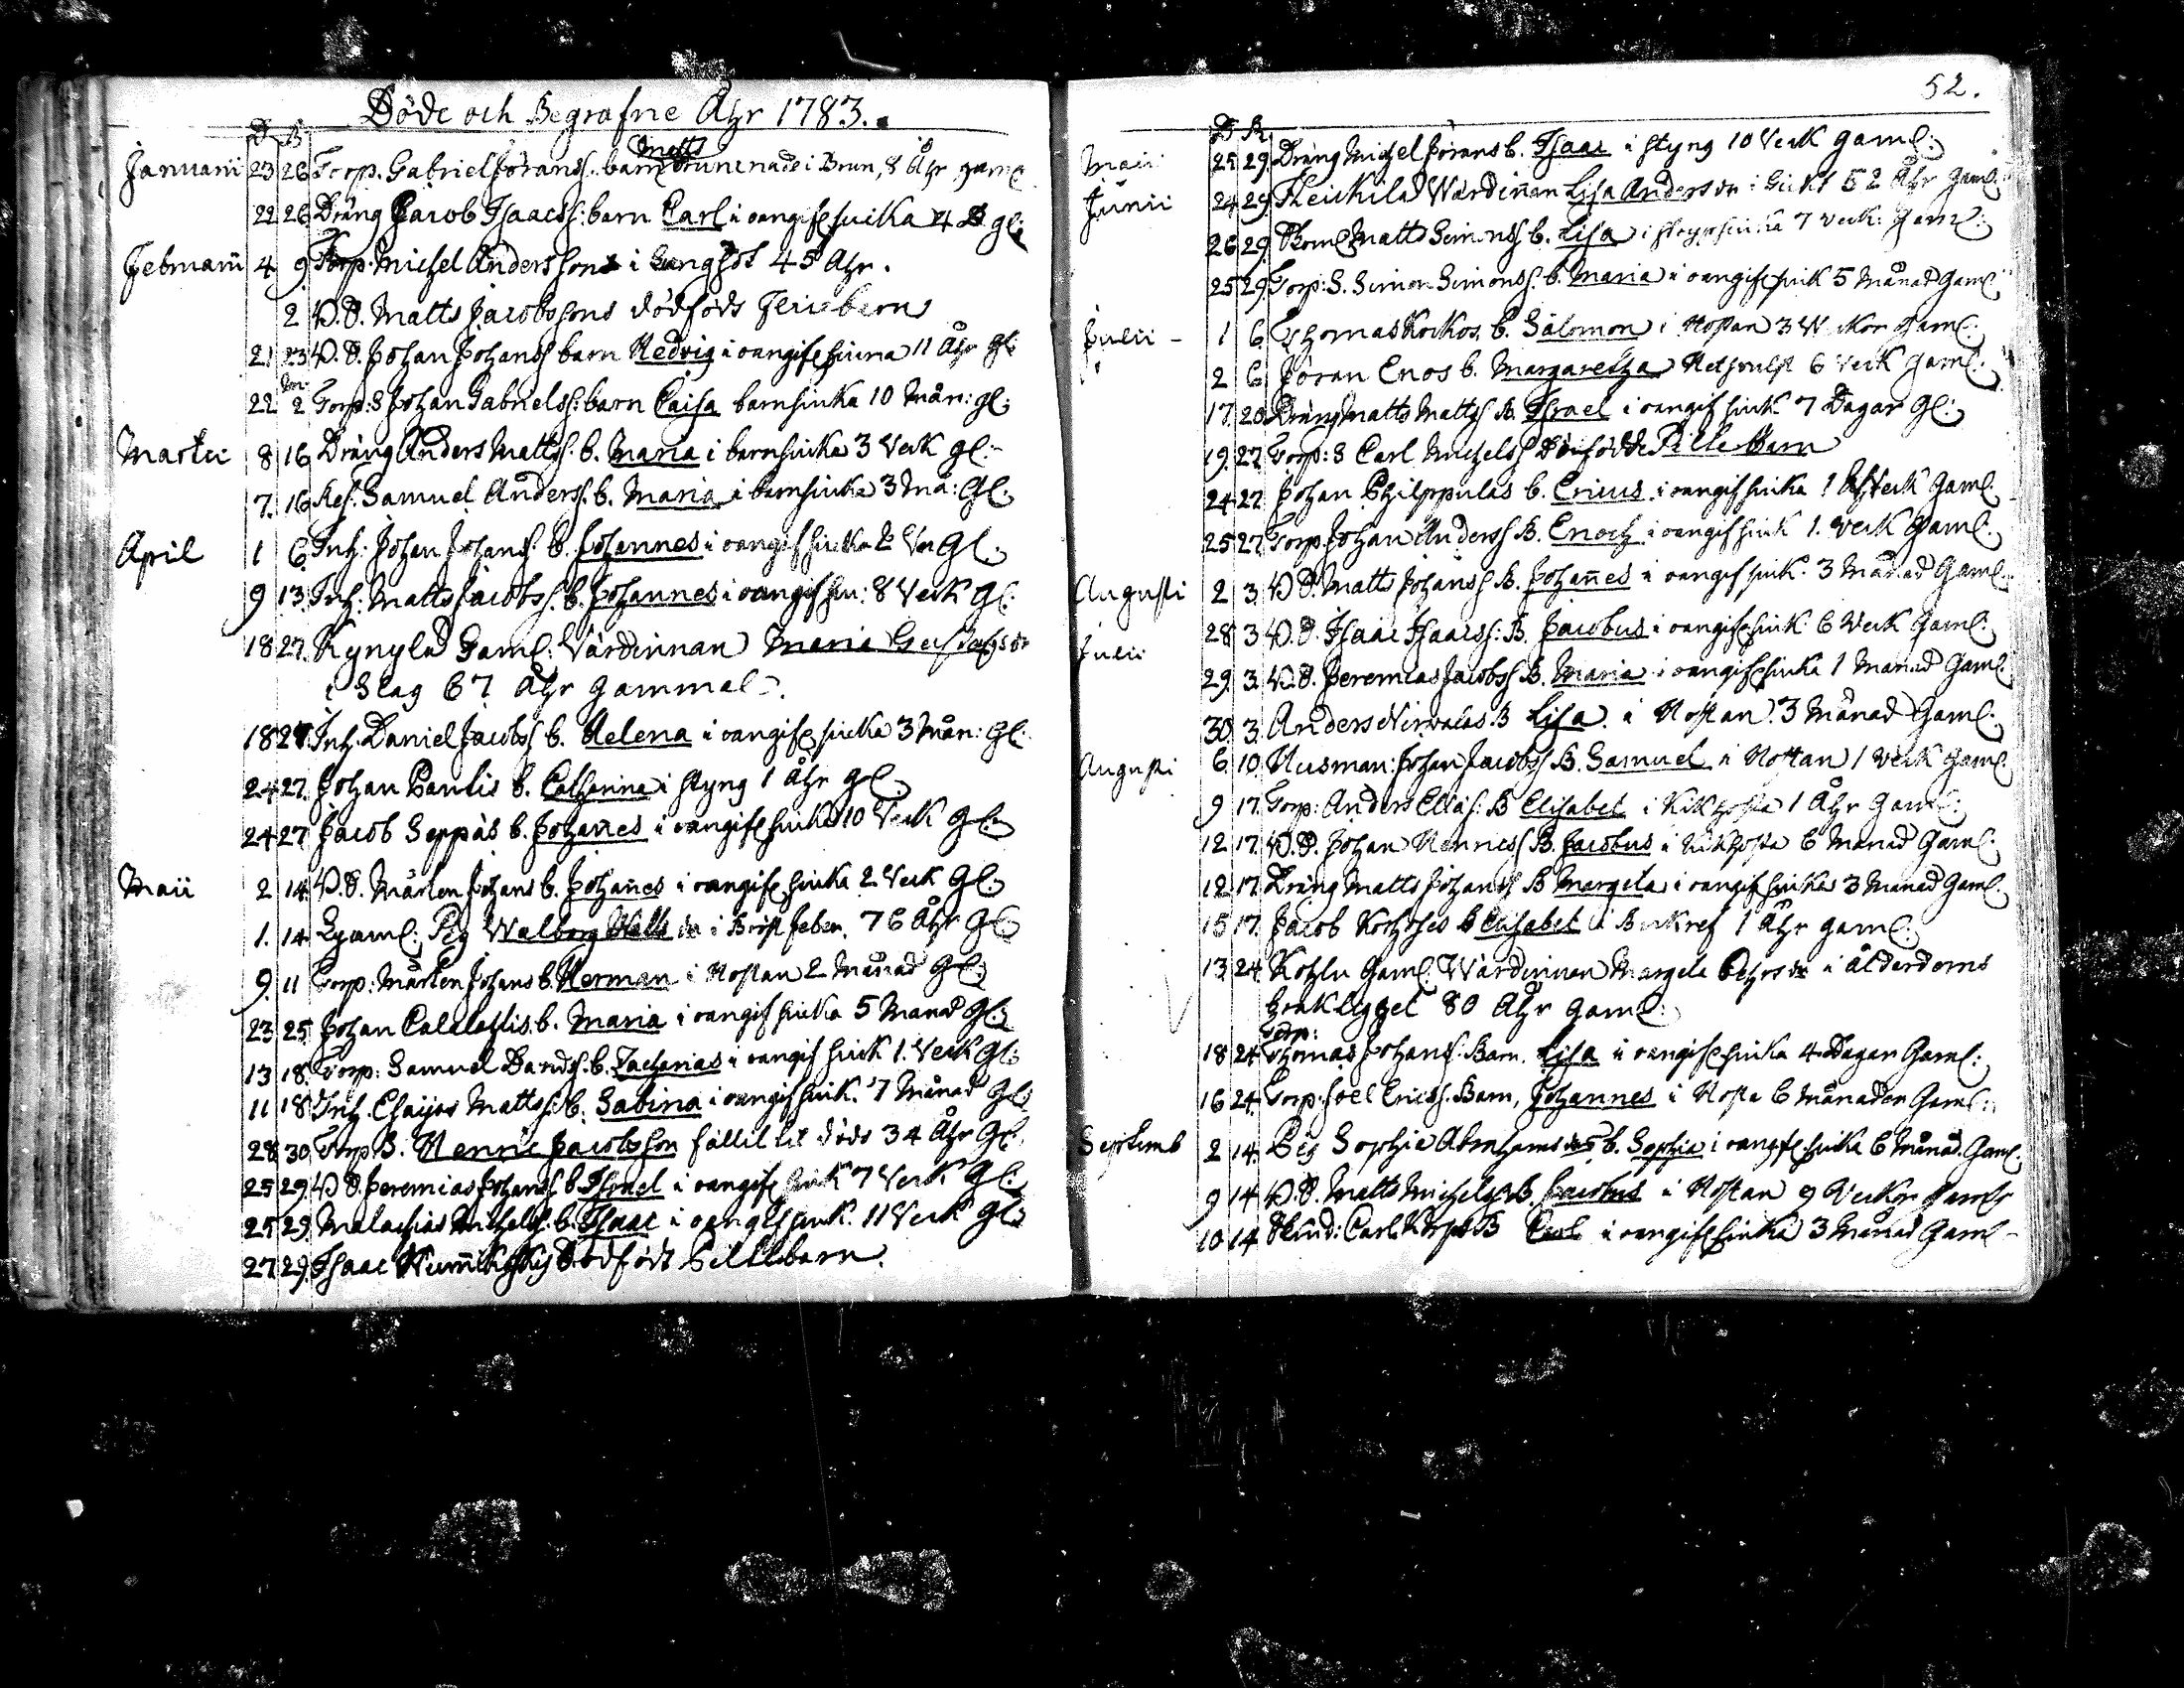 Döde och Begrafne Åhr 1783.
D B
Januarii 23 26 Torp. Gabriel Jöranss: barn Matts Drunknade i Brun, 8 Åhr gaml
22 26 Dräng Jacob Isaacss: barn Carl i oangifl siuka 4 gl:
Februarii 4 9 Torp. Michel Anderssons i 45 Åhr.
2 V.S. Matts Jacobssons dödföds barn
21 23 V.S. Johan Johanss barn Hedvig i oangifl siuka 11 Åhr gl:
22 2 Torp: S Johan Gabrielss: barn Caisa barnsiuka 10 Mån: gl:
Martii 8 16 Dräng Anders Mattss. b. Maria i barnsiuka 3 Veck gl:
7. 16 Samuel Anderss. b. Maria i barnsiuka 3 Må: Gl:
April 1 6 Inh: Johan Johanss. b. Johannes i oangifl siuka 2 Gl:
9 13 Inh: Matts Jacobss. b. Johannes i oangifl siu: 8 Veck gl:
18 27. Gaml: Värdinnan Maria
i Slag 67 Åhr gammal.
18 27. Inh. Daniel Jacobss b. Helena i oangifl siuka 3 Mån: gl:
24 27. Johan Paulis b. Catharina i styng 1 Åhr gl.
24 27 Jacob Seppäs b. Johañes i oangifl siuka 10 Veck gl:
Maii 2 14 V.S. Mårten Johans b. Johañes i oangifl siuka 2 Veck gl:
1. 14 Pig Walborg i Bröst feber, 76 Åhr gl
9. 11 Torp: Mårten Johans b. Herman i Hostan 2 Månad gl:
23 25 Johan b. Maria i oangifl siuka 5 Manad gl:
13 18. Torp: Samuel b. Zacharias i oangifl siuk 1. Veck gl:
11 18 Inh. Mattss. b. Sabina i oangifl siuk. 7 Månad gl:
28 30 Torp S. Henric Jacobsson fallit til döds 34 Åhr Gl.
25 29. V.S. Jeremias Johanss. b. Israel i oangifl siuk 7 Veck gl:
25 29. Malachias Michelss. b. Isaac i oangifl siuk. 11 Veck gl:
27 29. Isaac Dödfödt Pillebarn.
52.
D B
Maii 25 29. Dräng Michel Jörans b. Isaac i styng 10 Veck gaml:
Junii 24 29. Värdiñan Lisa Anders dr i Gickt 52 Åhr gaml:
26 29. Matts Simonss b. Lisa i 7 veck: gaml:
25 29. Torp: S. Simon Simonss. b. Maria i oangifl siuk 5 Månad gaml
Julii 1 6 Thomas b. Salomon i Hostan 3 gaml:
2 6 Jöran Enos b. Margaretha 6 Veck gaml:
17 20. Dräng Matts Mattss B. Israel i oangifl siuk 7 Dagar Gl:
19. 27 Torp: S Carl Michelss Dödfödde Pille Barn
24 27 Johan b. Ericus i oangifl siuka 1 Veck gaml.
25 27. Torp Johan Anderss B. Enoch i oangifl siuk 1. veck gaml.
Augusti 2 3 V.S. Matts Johanss B. Johañes i oangifl siuk. 3 Månad Gaml.
Julii 28 3 V.S. Isaac Isaacss: B. Jacobus i oangifl siuk 6 Veck gaml.
29. 3. V.S. Jeremias Jacobss B. Maria i oangifl siuka 1 Manad Gaml.
30. 3. Anders B Lisa i Hostan. 3 Månad Gaml.
Augusti 6. 10. Husman: Johan Jacobss B. Samuel i Hostan 1 veck gaml.
9 17. Torp: Anders B Elisabet i Kikhosta 1 Åhr gaml:
12 17. V.S. Johan Henricss B. Jacobus i kikhosta 6 Månad Gaml.
12 17. Dräng Matts Johanss B Margeta i oangifl siuka 3 Manad Gaml.
15 17. Jacob b Elisabet i 1 Åhr gaml:
13 24 Gaml: Värdinnan Margeta i ålderdoms
bräkligget 80 Åhr gaml:
18 24. Torp: Thomas Johanss. Barn. Lisa i oangifl siuka 4 Dagar Gaml:
16 24. Torp. Joel Ericss. Barn, Johannes i Hosta 6 månader Gaml:
Septemb 2 14. Pig Sophia Abrahams b. Sophia i oangifl siuka 6 månad. Gaml.
9 14 V.S. Matts Michelss B. Jacobus i Hostan 9 Veckor gaml
10 14 Carl B Carl i oangifl siuka 3 månad Gaml